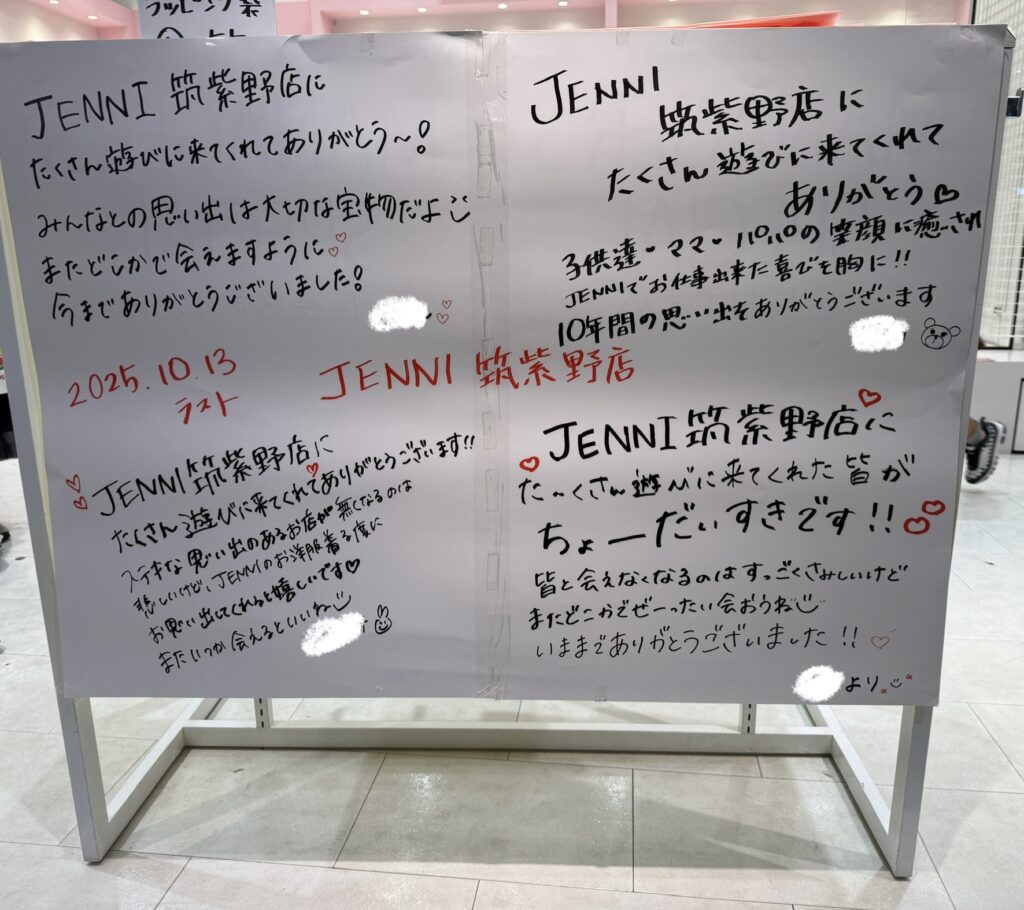 ラッピング
JENNI 筑紫野店に
たくさん遊びに来てくれてありがとう〜!
みんなとの思い出は大切な宝物だよ
またどこかで会えますように♡♡
今までありがとうございました!
JENNI
筑紫野店に
たくさん遊びに来てくれて
ありがとう♡
子供達・ママ・パパの笑顔に癒され
JENNIでお仕事出来た喜びを胸に!!
10年間の思い出をありがとうございます
2025.10.13
ラスト
JENNI 筑紫野店
JENNI筑紫野店に
たくさん遊びに来てくれてありがとうございます!!
ステキな思い出のあるお店が無くなるのは
悲しいけど、JENNIのお洋服着る度に
お思い出してくれると嬉しいです♡
またいつか会えるといいね
JENNI筑紫野店に
た〜くさん遊びに来てくれた皆が
ちょーだいすきです!!
皆と会えなくなるのはすっごくさみしいけど
またどこかでぜーったい会おうね
いままでありがとうございました!!♡
より